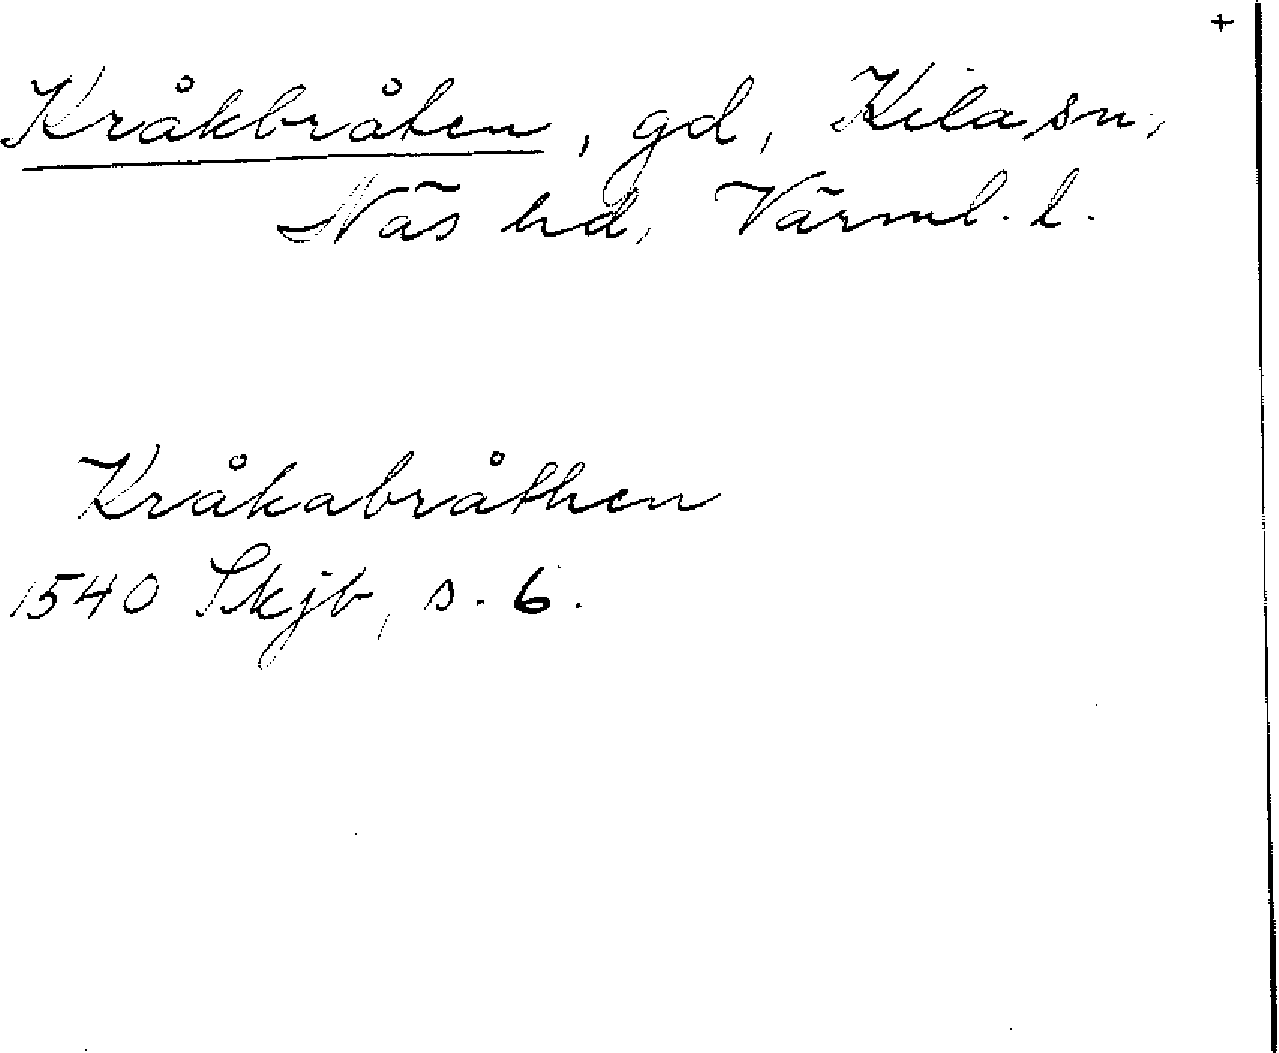 +
Kråkbråten, gd, Kila sn,
Näs hd, Värml. l.
Kråkabråthen
1540 Skjb, s. 6.